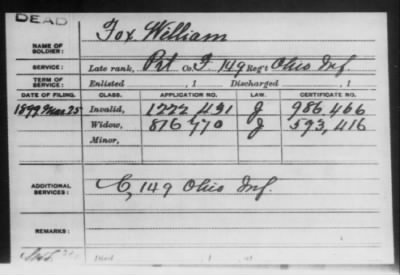 DEAD
NAME OF SOLDIER: Fox William
SERVICE: Late rank, Pvt Co. F, 149 Reg't Ohio Inf
TERM OF SERVICE: Enlisted , 1 Discharged , 1
DATE OF FILING. CLASS. APPLICATION NO. LAW. CERTIFICATE NO.
1899 Mar 25 Invalid, 1222 491 J 986,466
Widow, 816 770 J 593,416
Minor,
ADDITIONAL SERVICES: C, 149 Ohio Inf.
REMARKS: